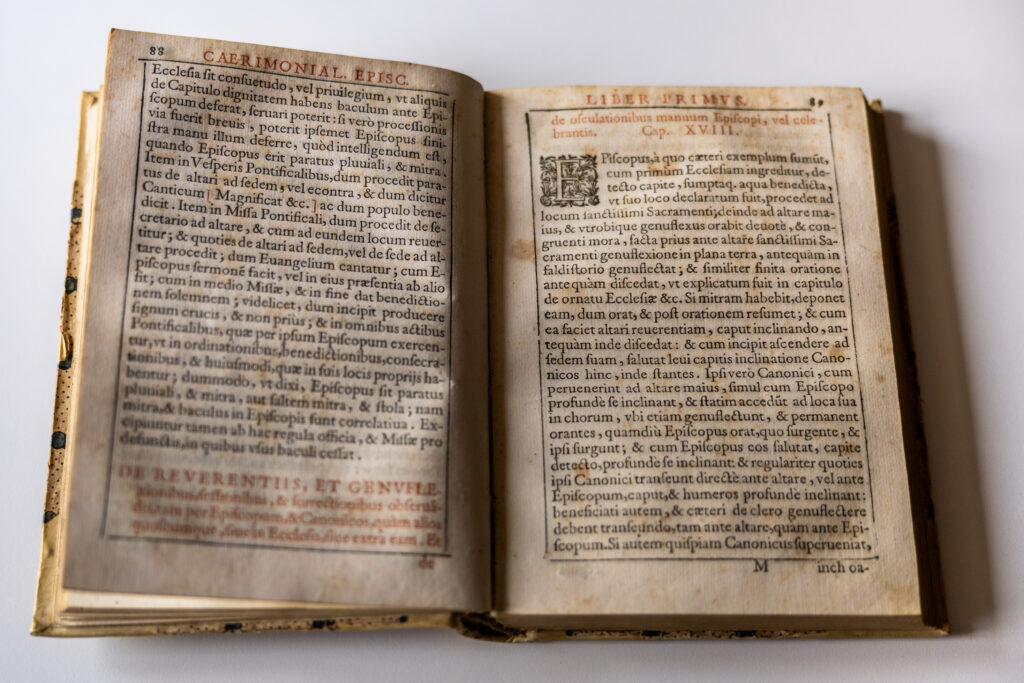 88
CAERIMONIAL. EPISC.
Ecclesia sit consuetudo, vel priuilegium, vt aliquis
de Capitulo dignitatem habens baculum ante Epi-
scopum deferat, seruari poterit: si verò processionis
via fuerit breuis, poterit ipsemet Episcopus sini-
stra manu illum deferre, quòd intelligendum est,
quando Episcopus erit paratus pluuiali, & mitra.
Item in Vesperis Pontificalibus, dum procedit para-
tus de altari ad sedem, vel econtra, & dum dicitur
Canticum [ Magnificat &c. ] ac dum populo bene-
dicit. Item in Missa Pontificali, dum procedit de se-
cretario ad altare, & cum ad eundem locum reuer-
titur; & quoties de altari ad sedem, vel de sede ad al-
tare procedit; dum Euangelium cantatur; cum E-
piscopus sermonē facit, vel in eius præsentia ab alio
fit; cum in medio Missæ, & in fine dat benedictio-
nem solemnem; videlicet, dum incipit producere
signum crucis, & non prius; & in omnibus actibus
Pontificalibus, quæ per ipsum Episcopum exercen-
tur, vt in ordinationibus, benedictionibus, consecra-
tionibus, & huiusmodi, quæ in suis locis proprijs ha-
bentur; dummodo, vt dixi, Episcopus sit paratus
pluuiali, & mitra, aut saltem mitra, & stola; nam
mitra, & baculus in Episcopis sunt correlatiua. Ex-
cipiuntur tamen ab hac regula officia, & Missæ pro
defunctis, in quibus vsus baculi cessat.
DE REVERENTIIS, ET GENVFLE-
xionibus, sessionibus, & surrectionibus obseruā-
dis tam per Episcopum, & Canonicos, quàm alios
quoscumque, siue in Ecclesia, siue extra eam. Et
de
LIBER PRIMVS. 89
de osculationibus manuum Episcopi, vel cele-
brantis. Cap. XVIII.
EPiscopus, à quo cæteri exemplum sumūt,
cum primùm Ecclesiam ingreditur, de-
tecto capite, sumptaq. aqua benedicta,
vt suo loco declaratum fuit, procedet ad
locum sanctissimi Sacramenti; deinde ad altare ma-
ius, & vtrobique genuflexus orabit deuotè, & con-
gruenti mora, facta prius ante altare sanctissimi Sa-
cramenti genuflexione in plana terra, antequàm in
faldistorio genuflectat; & similiter finita oratione
antequàm discedat, vt explicatum fuit in capitulo
de ornatu Ecclesiæ &c. Si mitram habebit, deponet
eam, dum orat, & post orationem resumet; & cum
ea faciet altari reuerentiam, caput inclinando, an-
tequàm inde discedat: & cum incipit ascendere ad
sedem suam, salutat leui capitis inclinatione Cano-
nicos hinc, inde stantes. Ipsi verò Canonici, cum
peruenerint ad altare maius, simul cum Episcopo
profundè se inclinant, & statim accedūt ad loca sua
in chorum, vbi etiam genuflectunt, & permanent
orantes, quamdiù Episcopus orat, quo surgente, &
ipsi surgunt; & cum Episcopus eos salutat, capite
detecto, profundè se inclinant: & regulariter quoties
ipsi Canonici transeunt directè ante altare, vel ante
Episcopum, caput, & humeros profundè inclinant:
beneficiati autem, & cæteri de clero genuflectere
debent transeūdo, tam ante altare, quam ante Epi-
scopum. Si autem quispiam Canonicus superueniat,
M inchoa-